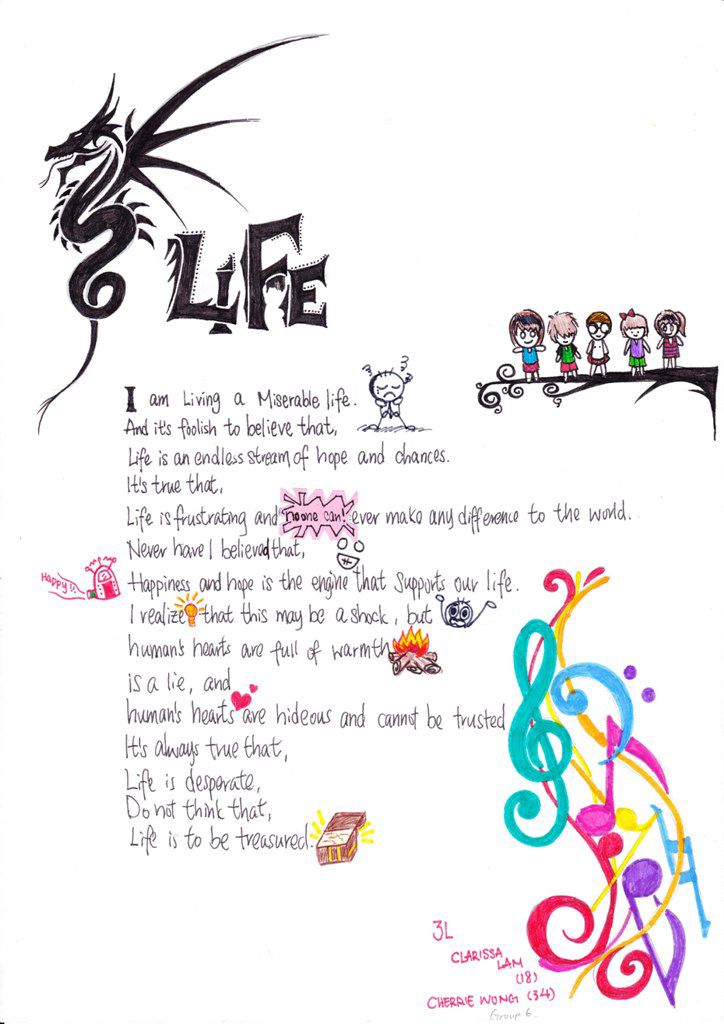 LIFE
I am Living a Miserable life.
And it's foolish to believe that,
Life is an endless stream of hope and chances.
It's true that,
Life is frustrating and no one can! ever make any difference to the world.
Never have I believed that,
Happy!!
Happiness and hope is the engine that supports our life.
I realize that this may be a shock, but
human's hearts are full of warmth
is a lie, and
human's hearts are hideous and cannot be trusted
It's always true that,
Life is desperate,
Do not think that,
Life is to be treasured.
3L
CLARISSA
LAM
(18)
CHERRIE WONG (34)
Group 6.